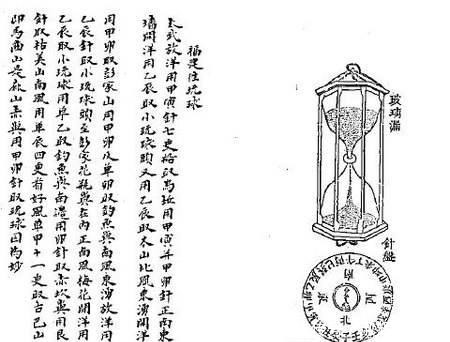 玻璃漏
針盤
北
福建徃琉球
太武放洋用甲寅針七更船取烏坵用甲寅并甲卯針正南東
墻開洋用乙辰取小琉球頭又用乙辰取木山北風東湧開洋
用甲卯取彭家山用甲卯及單卯取釣魚嶼南風東湧放洋用
乙辰針取小琉球頭至彭家花瓶嶼在内正南風梅花開洋用
乙辰取小琉球用單乙取釣魚嶼南邊用卯針取赤坎嶼用艮
針取枯美山南風用單辰四更看好風單甲十一更取古巴山
即馬齒山是麻山赤嶼用甲卯針取琉球國為妙